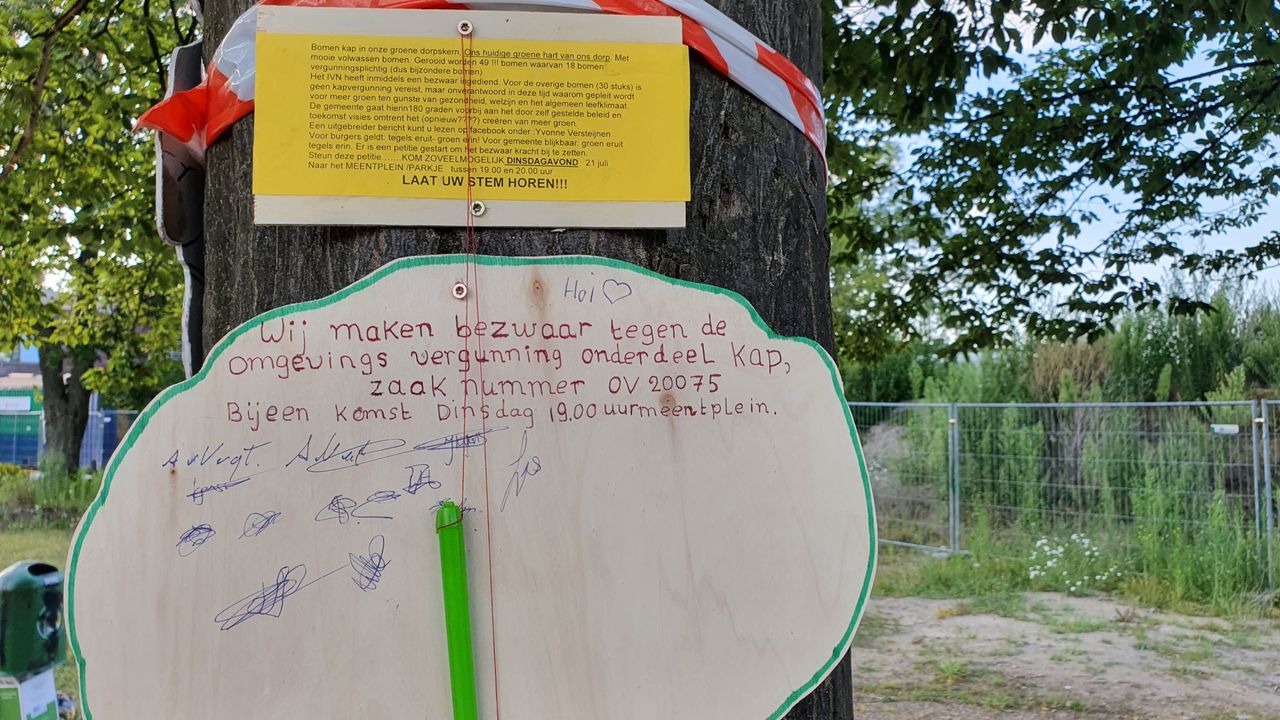 Bomen kap in onze groene dorpskern. Ons huidige groene hart van ons dorp. Met
mooie volwassen bomen. Gerooid worden 49 !!! bomen waarvan 18 bomen
vergunningsplichtig (dus bijzondere bomen)
Het IVN heeft inmiddels een bezwaar ingediend. Voor de overige bomen (30 stuks) is
geen kapvergunning vereist, maar onverantwoord in deze tijd waarom gepleit wordt
voor meer groen ten gunste van gezondheid, welzijn en het algemeen leefklimaat.
De gemeente gaat hierin180 graden voorbij aan het door zelf gestelde beleid en
toekomst visies omtrent het (opnieuw????) creëren van meer groen.
Een uitgebreider bericht kunt u lezen op facebook onder :Yvonne Versteijnen
Voor burgers geldt: tegels eruit- groen erin! Voor gemeente blijkbaar: groen eruit
tegels erin. Er is een petitie gestart om het bezwaar kracht bij te zetten.
Steun deze petitie.......KOM ZOVEELMOGELIJK DINSDAGAVOND 21 juli
Naar het MEENTPLEIN /PARKJE tussen 19.00 en 20.00 uur
LAAT UW STEM HOREN!!!
Hoi
Wij maken bezwaar tegen de
omgevings vergunning onderdeel Kap,
zaak nummer OV 20075
Bijeen komst Dinsdag 19.00 uur meentplein.